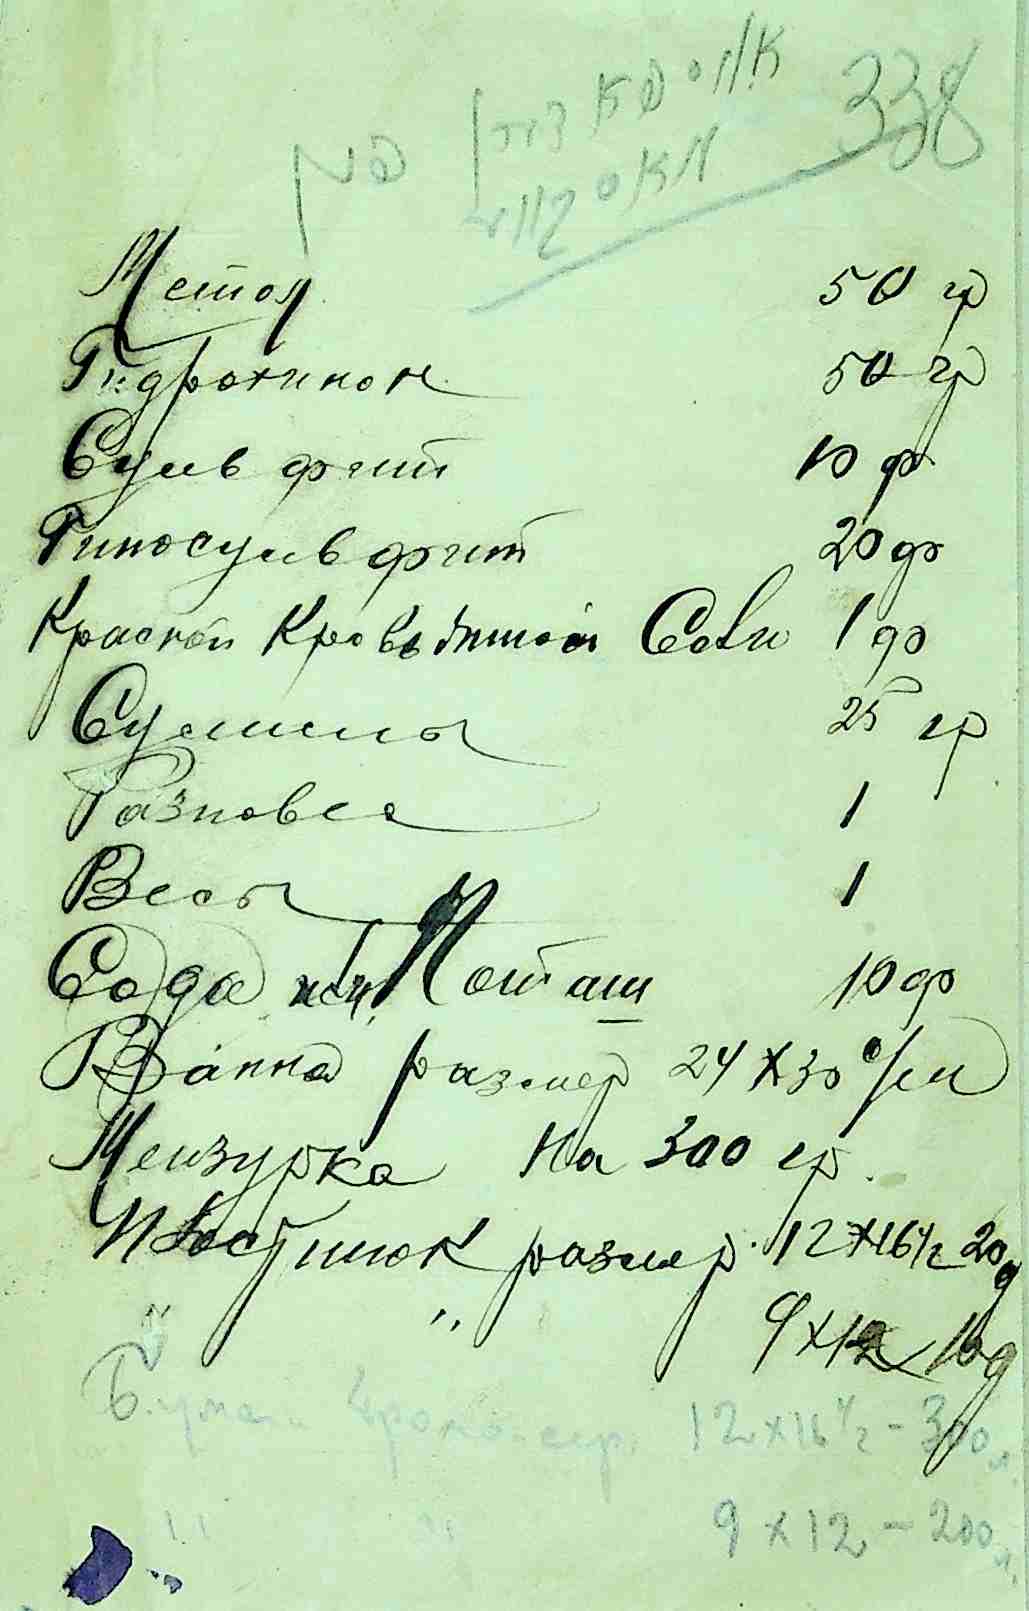 338
Метол 50 гр
Гидрохинон 50 гр
Сульфит 10 ф
Гипосульфит 20 ф
Красной Кровяной Соли 1 ф
Сулемы 25 гр
Разновес 1
Весы 1
Сода или Поташ 10 ф
Ванна размер 24 X 30 с/м
Мензурка на 300 гр.
Пластинок размер 12 X 16½ 20 д
" " 9 X 12 10 д
Бумаги бромо-сер. 12 X 16½ - 300 л.
" " 9 X 12 - 200 л.